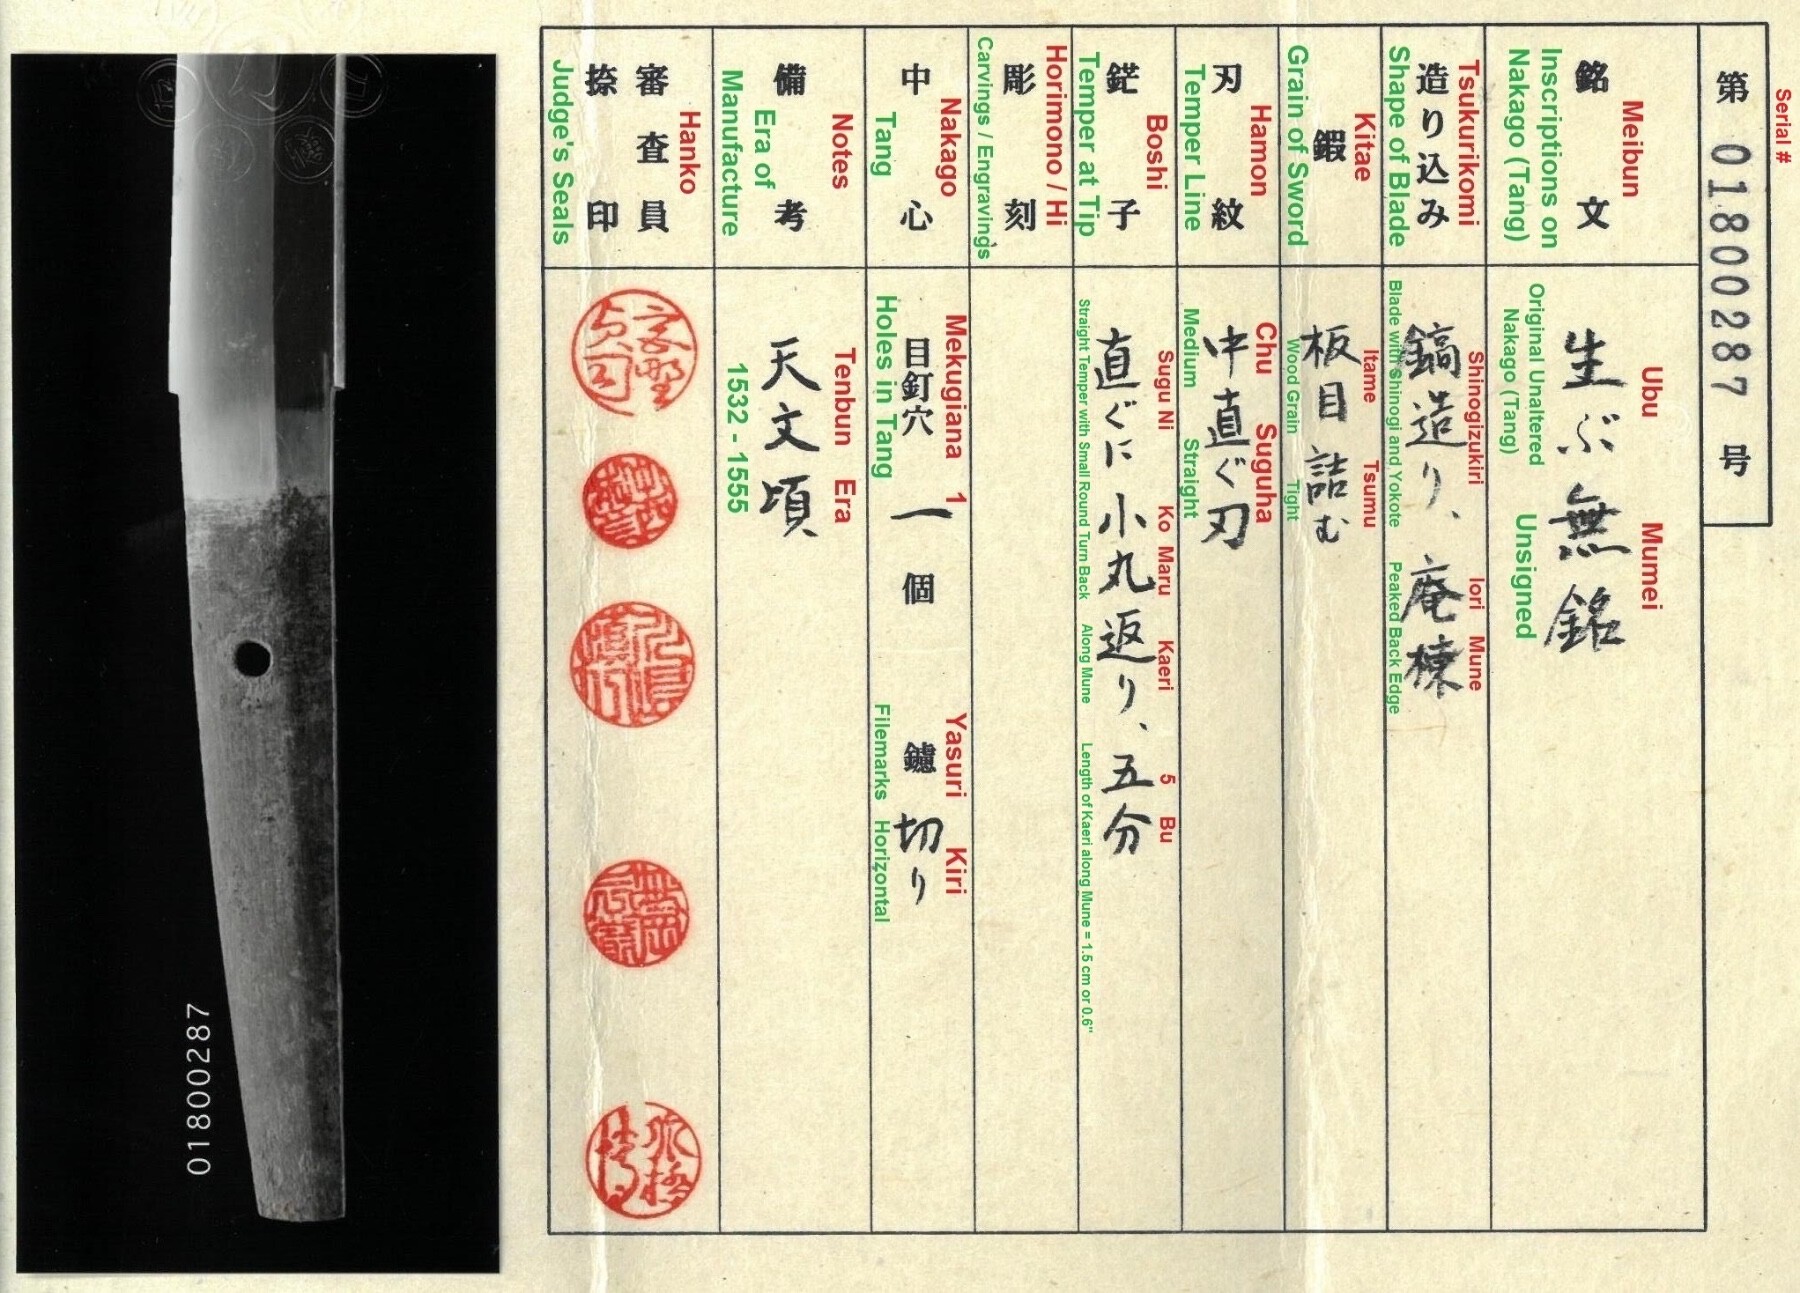 Serial #
第 01800287 号
Meibun
銘文
Inscriptions on
Nakago (Tang)
Ubu Mumei
生ぶ無銘
Original Unaltered
Nakago (Tang)
Unsigned
Tsukurikomi
造り込み
Shape of Blade
Shinogizukiri Iori Mune
鎬造り、庵棟
Blade with Shinogi and Yokote Peaked Back Edge
Kitae
鍜
Grain of Sword
Itame Tsumu
板目詰む
Wood Grain Tight
Hamon
刃紋
Temper Line
Chu Suguha
中直ぐ刃
Medium Straight
Boshi
鋩子
Temper at Tip
Sugu Ni Ko Maru Kaeri 5 Bu
直ぐに小丸返り、五分
Straight Temper with Small Round Turn Back Along Mune Length of Kaeri along Mune = 1.5 cm or 0.6"
Horimono / Hi
彫刻
Carvings / Engravings
Nakago
中心
Tang
Mekugiana 1 Yasuri Kiri
目釘穴 一 個 鑢 切り
Holes in Tang Filemarks Horizontal
Notes
備考
Era of
Manufacture
Tenbun Era
天文頃
1532 - 1555
Hanko
審査員
捺印
Judge's Seals
01800287